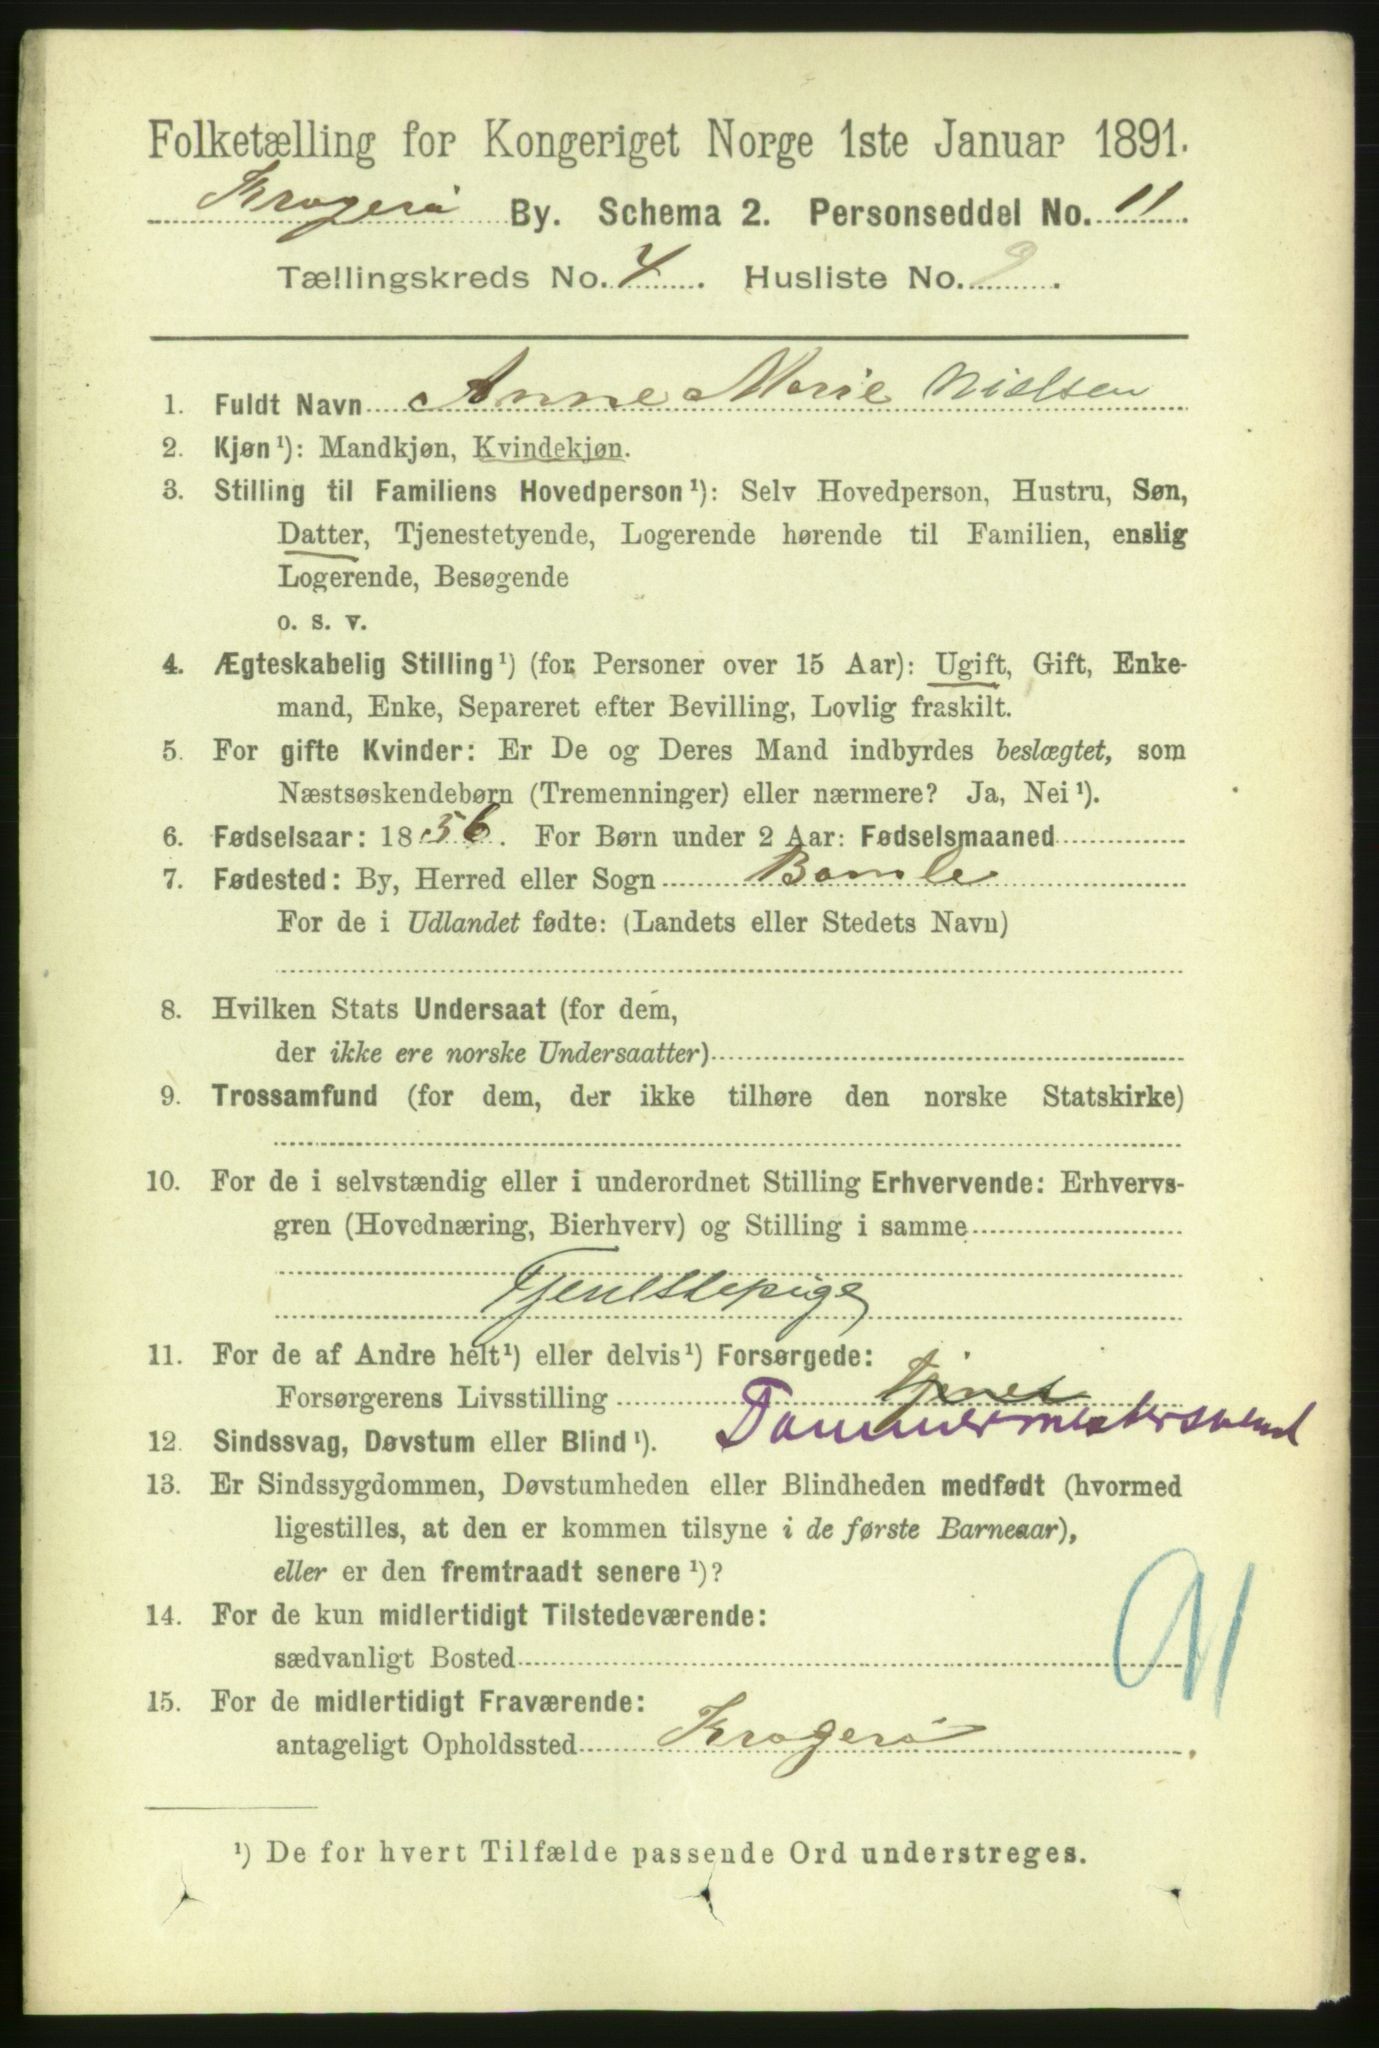 Folketælling for Kongeriget Norge 1ste Januar 1891.
Kragerø By. Schema 2. Personseddel No. 11.
Tællingskreds No. 4. Husliste No. 9.
1. Fuldt Navn Anne Marie Nielsen
2. Kjøn¹): Mandkjøn, Kvindekjøn.
3. Stilling til Familiens Hovedperson¹): Selv Hovedperson, Hustru, Søn,
Datter, Tjenestetyende, Logerende hørende til Familien, enslig
Logerende, Besøgende
o. s. v.
4. Ægteskabelig Stilling¹) (for Personer over 15 Aar): Ugift, Gift, Enke-
mand, Enke, Separeret efter Bevilling, Lovlig fraskilt.
5. For gifte Kvinder: Er De og Deres Mand indbyrdes beslægtet, som
Næstsøskendebørn (Tremenninger) eller nærmere? Ja, Nei¹).
6. Fødselsaar: 1856. For Børn under 2 Aar: Fødselsmaaned
7. Fødested: By, Herred eller Sogn Bamle
For de i Udlandet fødte: (Landets eller Stedets Navn)
8. Hvilken Stats Undersaat (for dem,
der ikke ere norske Undersaatter)
9. Trossamfund (for dem, der ikke tilhøre den norske Statskirke)
10. For de i selvstændig eller i underordnet Stilling Erhvervende: Erhvervs-
gren (Hovednæring, Bierhverv) og Stilling i samme
Tjenestepige
11. For de af Andre helt¹) eller delvis¹) Forsørgede:
Forsørgerens Livsstilling tjener
Tømmermestersvend
12. Sindssvag, Døvstum eller Blind¹).
13. Er Sindssygdommen, Døvstumheden eller Blindheden medfødt (hvormed
ligestilles, at den er kommen tilsyne i de første Barneaar),
eller er den fremtraadt senere¹)?
14. For de kun midlertidigt Tilstedeværende:
sædvanligt Bosted
15. For de midlertidigt Fraværende:
antageligt Opholdssted Kragerø.
¹) De for hvert Tilfælde passende Ord understreges.